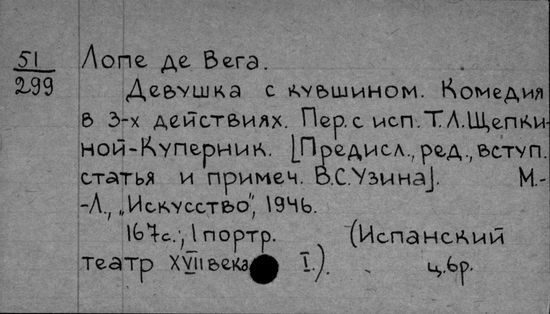 51
299
Лопе де Вега.
Девушка с кувшином. Комедия
в 3-х действиях. Пер. с исп. Т.Л.Щепки-
ной-Куперник. [Предисл., ред., вступ.
статья и примеч. В.С.Узина]. М.-
-Л., „Искусство", 1946.
167с.; 1 портр. (Испанский
театр XVII века I.). ц.6р.